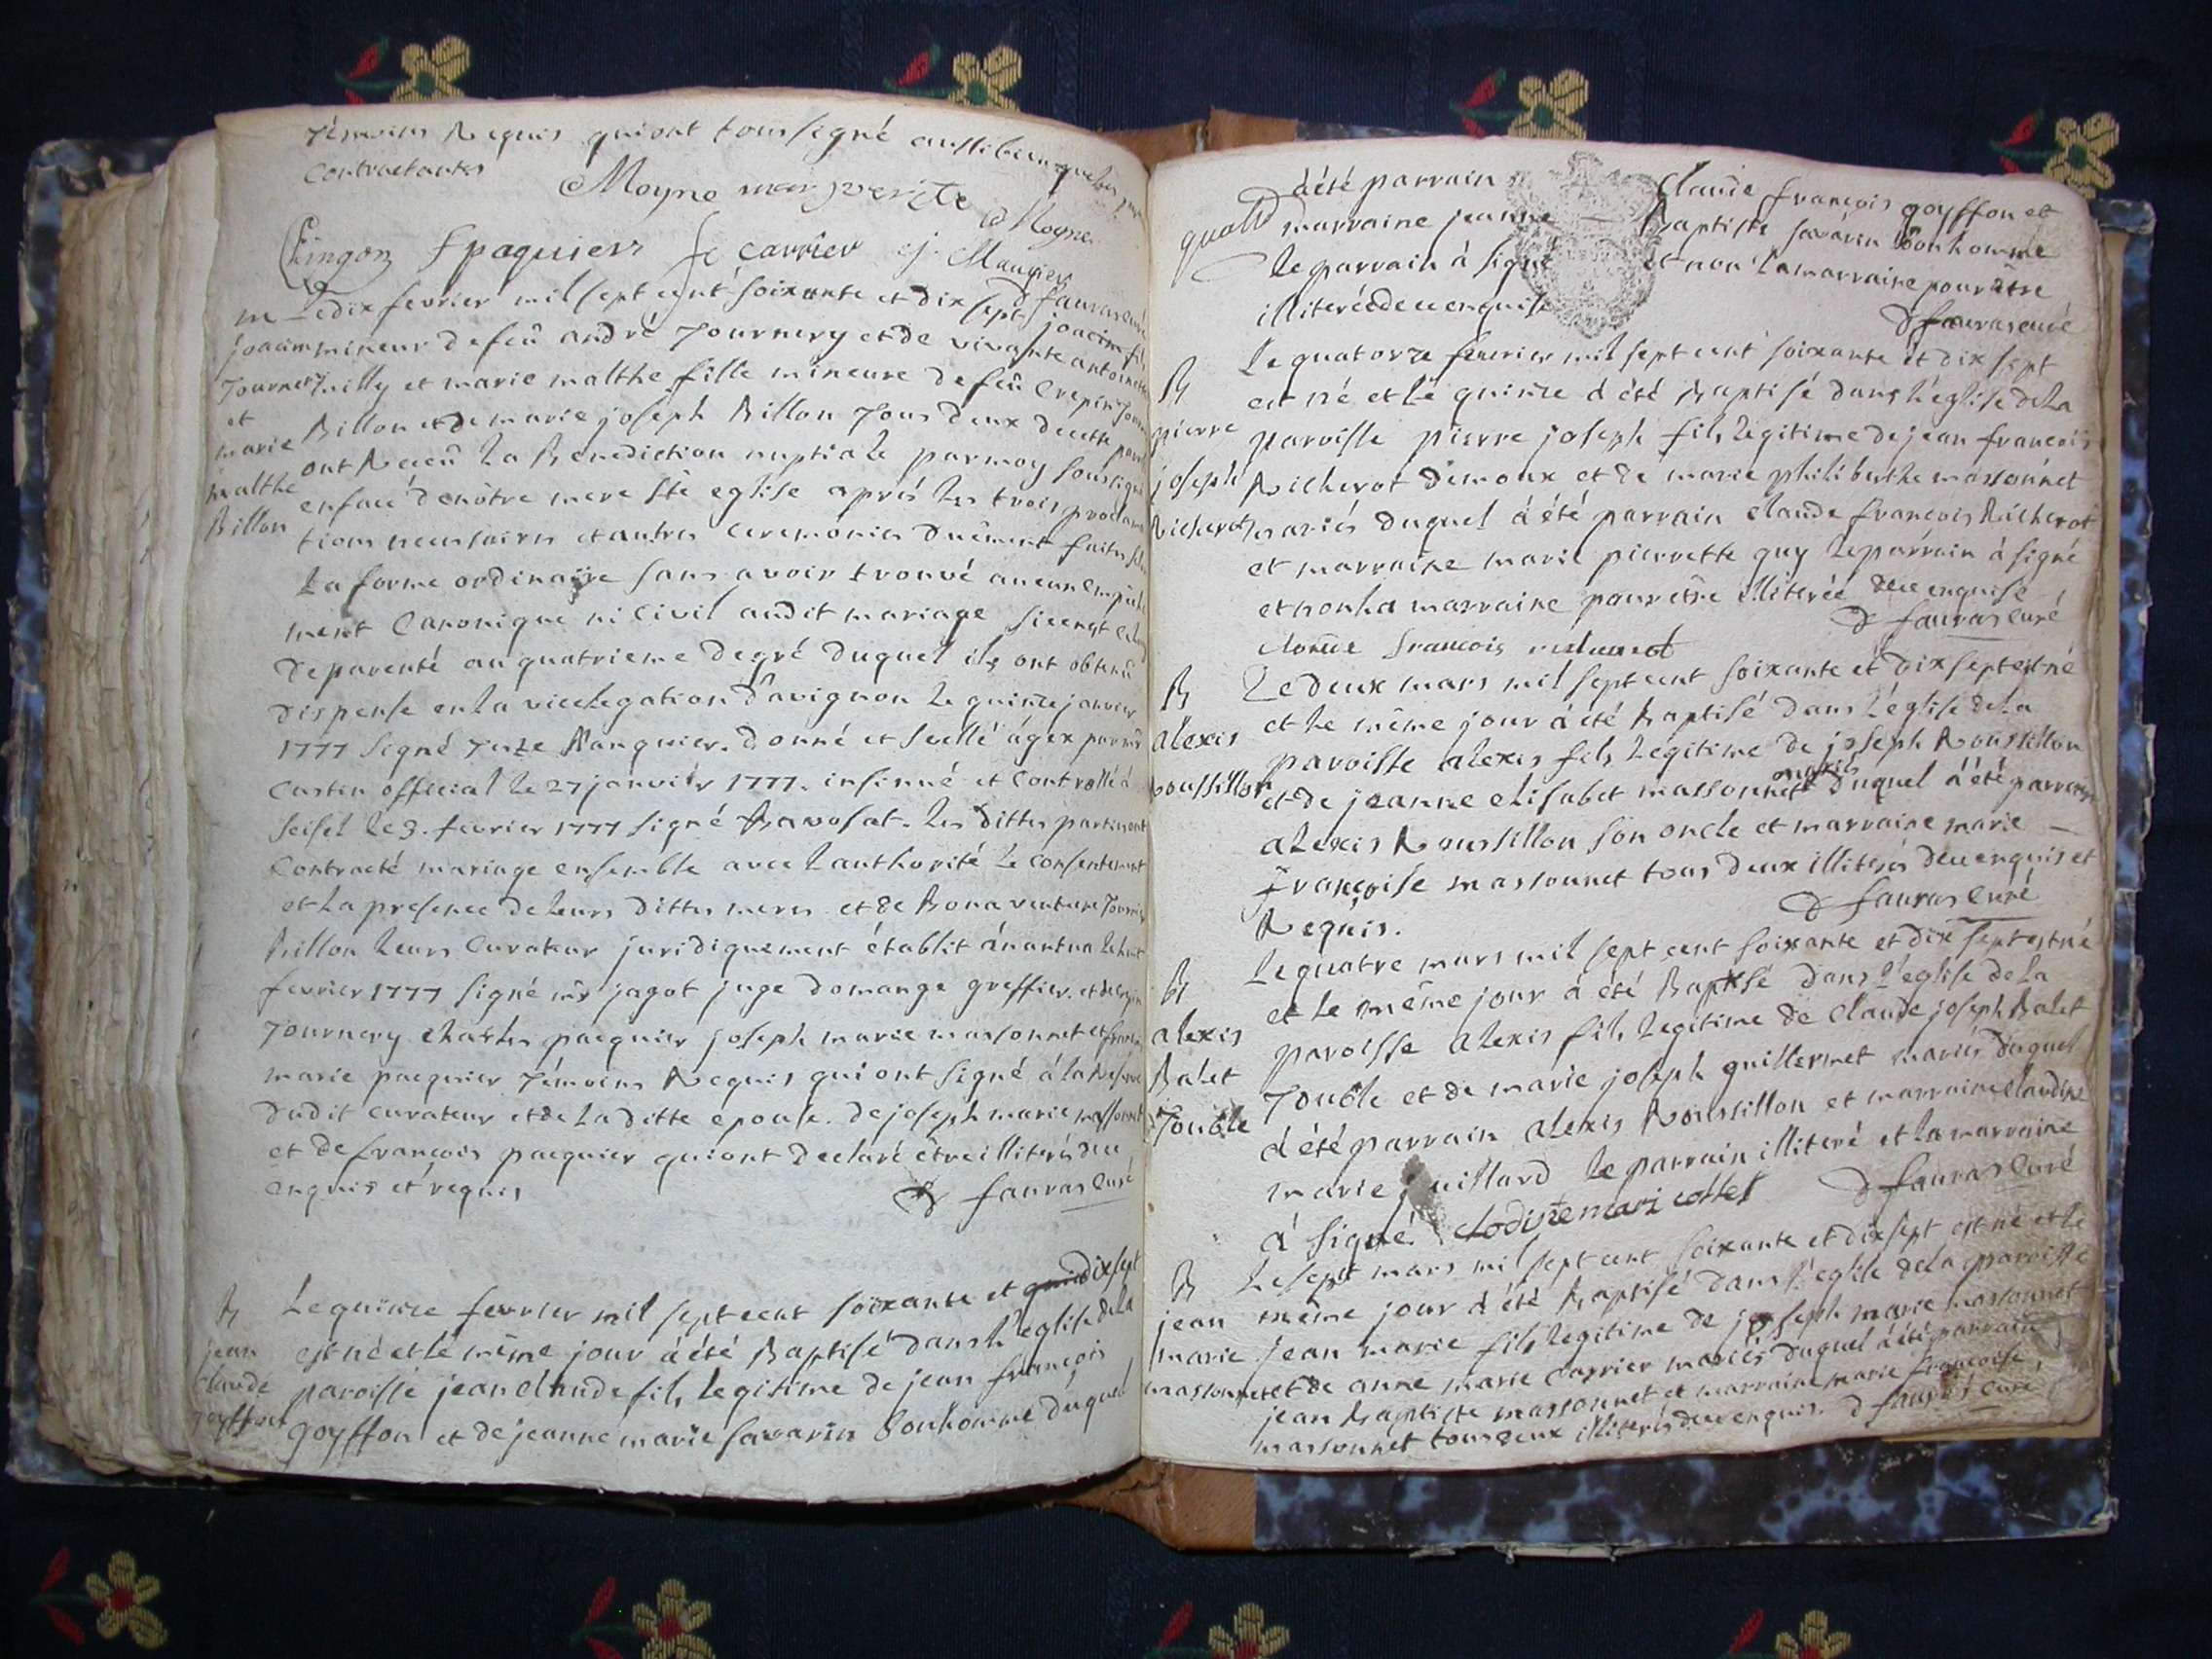 témoins Requis qui ont tous signé aussi bien que les
contractantes
Moyne marguerite
Moyne
Chingon f paquiers fc carrier cj. Maugier
D fauras curé
m
joacim
Journery
et
marie
malthe
Billon
Le dix fevrier mil sept cent soixante et dix sept joacim fils
mineur de feû andré Journery et de vivante antoinette
milly et marie malthe fille mineure de feû Crepin
Billon et de marie joseph Billon Tous deux de cette
ont Receû La Benediction nuptiale par moy soussigné
en face de nôtre mere Ste eglise aprés les trois proclama
tions necessaires et autres Ceremonies dûement faites
La forme ordinaire sans avoir trouvé aucun empêche
ment Canonique ni Civil audit mariage si ce nest celuy
de parenté au quatrieme degré duquel ils ont obtenû
dispense en la vicelegation d'avignon le quinze janvier
1777 signé donné et scellé à gex par mr
Custin official le 27 janvier 1777. insinué et controllé à
seisel le 3. fevrier 1777 signé Ravosat. les dittes parties ont
Contracté mariage ensemble avec l'authorité le consentement
et la presence de leurs dittes meres et de Bonaventure
Billon leurs Curateur juridiquement établit à nantua le huit
fevrier 1777 signé mr jagot juge domange greffier. et de
Journery Charles pacquier joseph marie massonnet et
marie pacquier Témoins Requis qui ont signé à la Reserve
dudit curateur et de la ditte epouse. de joseph marie massonnet
et de françois pacquier qui ont declaré être illiterés de ce
enquis et requis
D fauras Curé
B
jean
Claude
goyffon
Le quinze fevrier mil sept cent soixante et dix sept
est né et le même jour à été Baptisé dans l'eglise de la
paroisse jean Claude fils legitime de jean françois
goyffon et de jeanne marie savarin Bonhomme duquel
à été parrain Claude françois goyffon et
marraine jeanne Baptiste savarin Bonhomme
le parrain à signé et non la marraine pour être
illiterée de ce enquise
D fauras curé
B
pierre
joseph
Richerot
le quatorze fevrier mil sept cent soixante et dix sept
est né et le quinze à été Baptisé dans l'église de la
paroisse pierre joseph fils legitime de jean françois
Richerot dimoux et de marie philiberthe massonnet
mariés duquel à été parrain claude françois Richerot
et marraine marie pierrette guy le parrain à signé
et non la marraine pour être illiterée de ce enquise
D fauras Curé
claude francois
B
alexis
Roussillon
Le deux mars mil sept cent soixante et dix sept est né
et le même jour à été Baptisé dans l'église de la
paroisse alexis fils legitime de joseph Roussillon
et de jeanne elisabet massonnet mariés duquel à été parrain
alexis Roussillon son oncle et marraine marie
françoise massonnet tous deux illiterés de ce enquis et
Requis.
D fauras Curé
B
alexis
Balet
Touble
le quatre mars mil sept cent soixante et dix sept est né
et le même jour à été Baptisé dans l'église de la
paroisse alexis fils legitime de Claude joseph Balet
Touble et de marie joseph guillermet mariés duquel
à été parrain alexis Roussillon et marraine claudine
marie le parrain illiteré et la marraine
à signé. clodine mari collet
D fauras Curé
B
jean
marie
massonnet
Le sept mars mil sept cent soixante et dix sept est né et le
même jour à été Baptisé dans l'eglise de la paroisse
jean marie fils legitime de joseph marie massonnet
et de anne marie Carrier mariés duquel à été parrain
jean Baptiste massonnet et marraine marie françoise
massonnet tous deux illiterés de ce enquis. D fauras curé